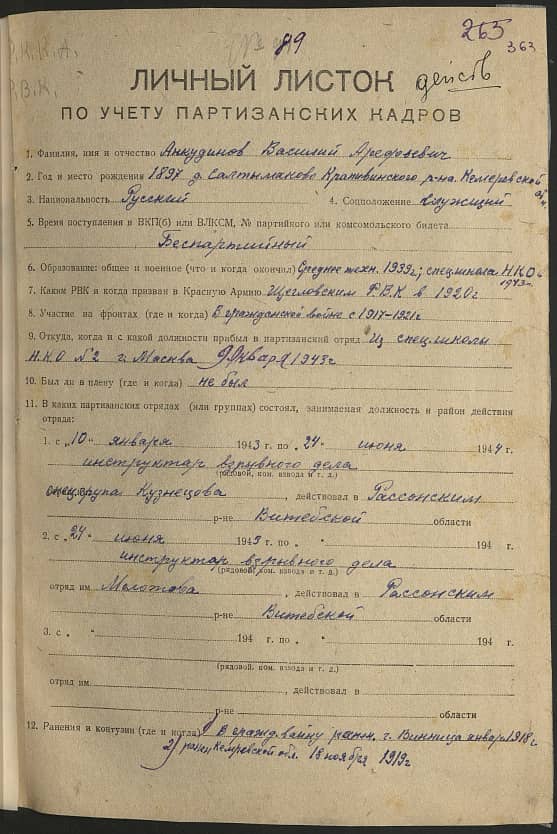 89
265
363
Р.К.К.А.
Р.В.К.
ЛИЧНЫЙ ЛИСТОК действ
ПО УЧЕТУ ПАРТИЗАНСКИХ КАДРОВ
1. Фамилия, имя и отчество Анкудинов Василий Арефьевич
2. Год и место рождения 1897 д. Салтымаково Крапивинского р-на Кемеровской
обл.
3. Национальность Русский 4. Соцположение служащий
5. Время поступления в ВКП(б) или ВЛКСМ, № партийного или комсомольского билета
Беспартийный
6. Образование: общее и военное (что и когда окончил) Среднее техн. 1939г; спецшкола Н.К.О.
1943г.
7. Каким РВК и когда призван в Красную Армию Щегловским Р.В.К в 1920г
8. Участие на фронтах (где и когда) В гражданской войне с 1917-1921г
9. Откуда, когда и с какой должности прибыл в партизанский отряд Из спецшколы
Н.К.О №2 г. Москва 9 Января 1943г
10. Был ли в плену (где и когда) не был
11. В каких партизанских отрядах (или группах) состоял, занимаемая должность и район действия
отряда:
1. с „10" января 1943 г. по „24" июня 1944 г.
инструктар взрывного дела
(рядовой, ком. взвода и т. д.)
спецгрупа Кузнецова, действовал в Рассонским
р-не Витебской области
2. с „24" июня 1943 г. по „ " 194 г.
инструктар взрывного дела
(рядовой, ком. взвода и т. д.)
отряд им Молотова, действовал в Рассонским
р-не Витебской области
3. с „ " 194 г. по „ " 194 г.
(рядовой, ком. взвода и т. д.)
отряд им., действовал в
р-не области
12. Ранения и контузии (где и когда) 1) В гражд.вайну ранен. г. Винница январ 1918г
2) ранен Кемровской обл. 18 ноября 1919г